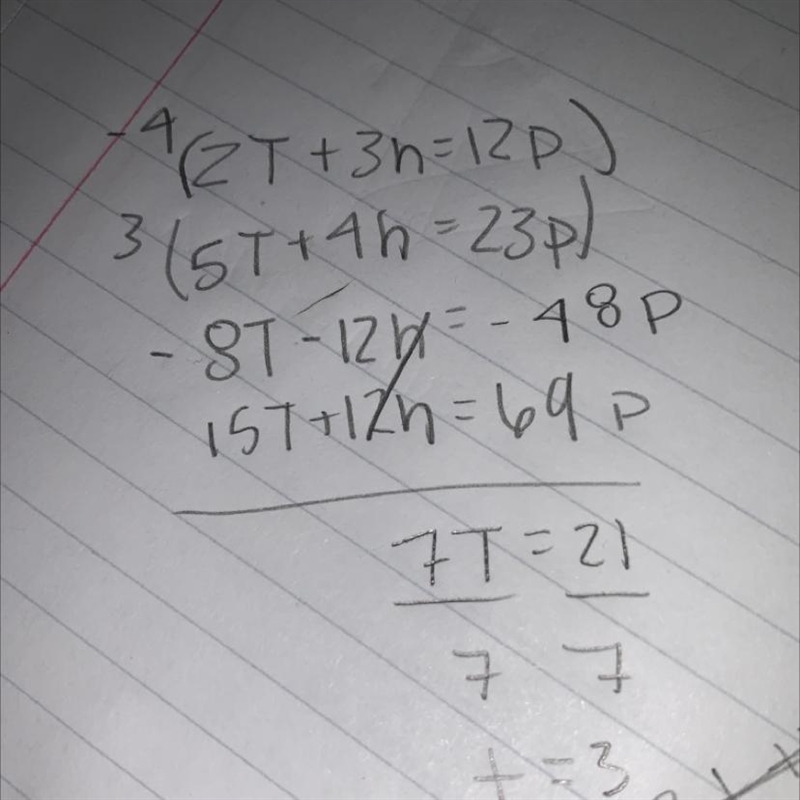 -4(2T+3h=12p)
3(5T+4h=23p)
-8T-12h=-48p
15T+12h=69p
7T=21
7 7
t=3